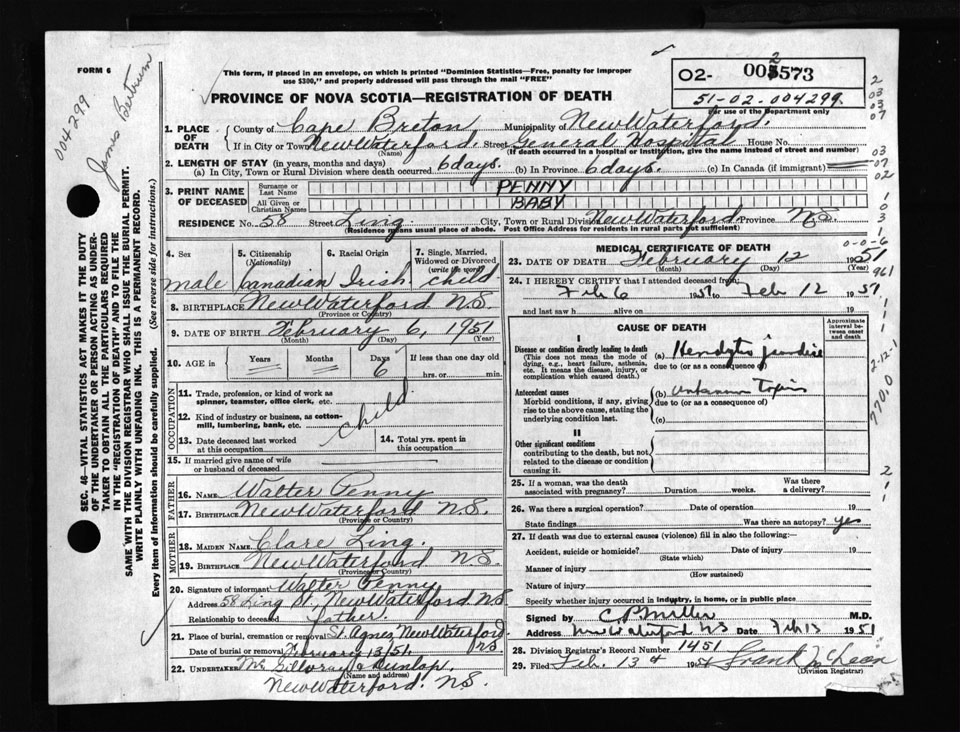 FORM 6
This form, if placed in an envelope, on which is printed "Dominion Statistics—Free, penalty for improper
use $300," and properly addressed will pass through the mail "FREE"
02- 573
51-02-004299
For use of the Department only
PROVINCE OF NOVA SCOTIA—REGISTRATION OF DEATH
004299
James
SEC. 46—VITAL STATISTICS ACT MAKES IT THE DUTY
OF THE UNDERTAKER OR PERSON ACTING AS UNDER-
TAKER TO OBTAIN ALL THE PARTICULARS REQUIRED
IN THE "REGISTRATION OF DEATH" AND TO FILE THE
SAME WITH THE DIVISION REGISTRAR WHO SHALL ISSUE THE BURIAL PERMIT.
WRITE PLAINLY WITH UNFADING INK. THIS IS A PERMANENT RECORD.
Every item of information should be carefully supplied. (See reverse side for instructions.)
1. PLACE OF DEATH County of Cape Breton Municipality of New Waterford.
If in City or Town New Waterford. Street General Hospital House No.
(Name) (If death occurred in a hospital or institution, give the name instead of street and number)
2. LENGTH OF STAY (in years, months and days)
(a) In City, Town or Rural Division where death occurred 6 days. (b) In Province 6 days. (c) In Canada (if immigrant)
3. PRINT NAME OF DECEASED Surname or Last Name PENNY
All Given or Christian Names BABY
RESIDENCE No. 58 Street Ling. City, Town or Rural Division New Waterford Province N.S.
(Residence means usual place of abode. Post Office Address for residents in rural parts not sufficient)
4. Sex 5. Citizenship (Nationality) 6. Racial Origin 7. Single, Married, Widowed or Divorced (write the word)
male Canadian Irish child
8. BIRTHPLACE New Waterford N.S.
(Province or Country)
9. DATE OF BIRTH February 6, 1951
(Month) (Day) (Year)
10. AGE in Years Months Days 6 If less than one day old hrs. or min.
OCCUPATION
11. Trade, profession, or kind of work as spinner, teamster, office clerk, etc.
12. Kind of industry or business, as cotton-mill, lumbering, bank, etc. child
13. Date deceased last worked at this occupation 14. Total yrs. spent in this occupation
15. If married give name of wife or husband of deceased
FATHER
16. NAME Walter Penny
17. BIRTHPLACE New Waterford N.S.
(Province or Country)
MOTHER
18. MAIDEN NAME Clare Ling.
19. BIRTHPLACE New Waterford N.S.
(Province or Country)
20. Signature of informant Walter Penny
Address 58 Ling St., New Waterford. N.S
Relationship to deceased father.
21. Place of burial, cremation or removal St. Agnes New Waterford N.S
Date of burial or removal February 13/51.
22. UNDERTAKER McGillvray & Dunlop.
(Name and address)
New Waterford. N.S.
MEDICAL CERTIFICATE OF DEATH
23. DATE OF DEATH February 12 1951
(Month) (Day) (Year)
24. I HEREBY CERTIFY that I attended deceased from:
Feb 6 1951 to Feb 12 1951
and last saw h alive on 19
CAUSE OF DEATH
Approximate interval between onset and death
I
Disease or condition directly leading to death
(This does not mean the mode of dying, e.g., heart failure, asthenia, etc. It means the disease, injury, or complication which caused death.)
(a)
due to (or as a consequence of)
Antecedent causes
Morbid conditions, if any, giving rise to the above cause, stating the underlying condition last.
(b) unknown
due to (or as a consequence of)
(c)
II
Other significant conditions
contributing to the death, but not related to the disease or condition causing it.
25. If a woman, was the death associated with pregnancy? Duration weeks. Was there a delivery?
26. Was there a surgical operation? Date of operation 19
State findings Was there an autopsy? yes
27. If death was due to external causes (violence) fill in also the following:
Accident, suicide or homicide? Date of injury 19
(State which)
Manner of injury
(How sustained)
Nature of injury
Specify whether injury occurred in industry, in home, or in public place
Signed by M.D.
Address New Waterford NS Date Feb 13 1951
28. Division Registrar's Record Number 1451
29. Filed Feb. 13 Frank McLean
(Division Registrar)